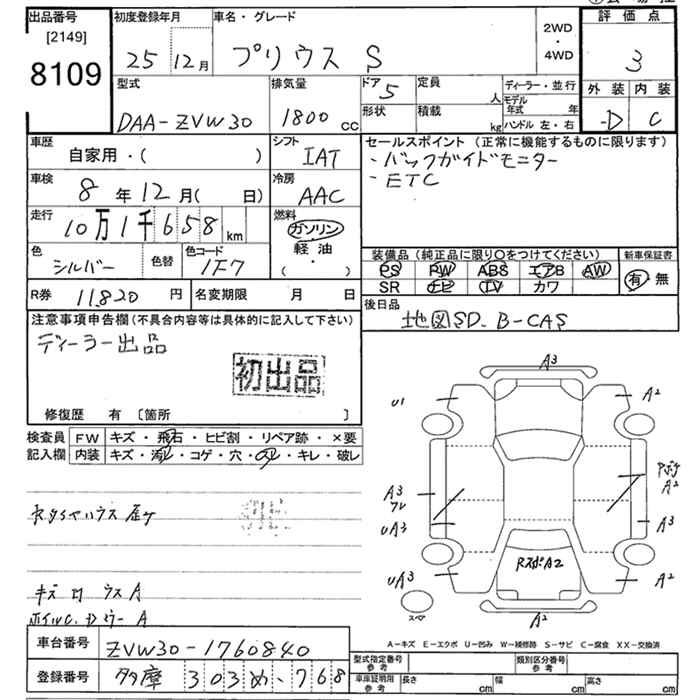 出品番号 初度登録年月 車名・グレード 評価点
[2149] 25 12月 プリウス S 2WD・4WD 3
8109
型式 排気量 ドア 5 定員 人 ディーラー・並行 外装 内装
DAA-ZVW30 1800 cc 形状 積載 kg モデル年式 年 D C
ハンドル 左・右
車歴 自家用・( ) シフト IAT セールスポイント (正常に機能するものに限ります)
・バックガイドモニター
・ETC
車検 8年12月( 日) 冷房 AAC
走行 10万1千658km 燃料 ガソリン 軽油・( )
色 シルバー 色替 色コード 1F7 装備品 (純正品に限り○をつけてください) 新車保証書
PS PW ABS エアB AW 有 無
SR ナビ TV カワ
R券 11,820円 名変期限 月 日 後日品
地図SD. B-CAS
注意事項申告欄 (不具合内容等は具体的に記入して下さい)
ディーラー出品
初出品
修復歴 有 〔箇所 〕
検査員記入欄 FW キズ・飛石・ヒビ割・リペア跡・×要
内装 キズ・汚レ・コゲ・穴・スレ・キレ・破レ
A3
U1 A2
A3 A2
UA3 A3
RスポA2
UA3 A2
スペア A2
キズ ロ ウス A
A-キズ E-エクボ U-凹み W-補修跡 S-サビ C-腐食 XX-交換済
車台番号 ZVW30-1760840
登録番号 多摩 303 め・768
型式指定番号 参考 類別区分番号 参考
車庫証明用 参考 長さ cm 幅 cm 高さ cm